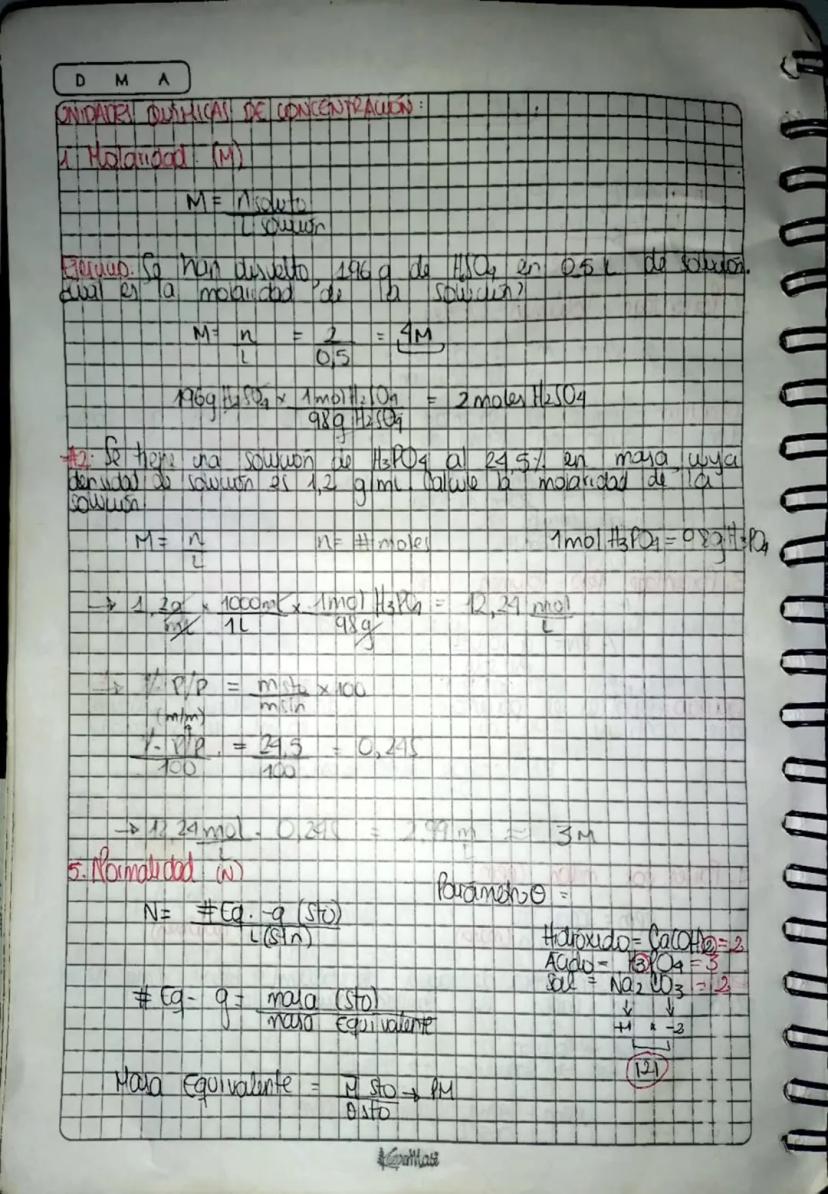 D M A
UNIDADES QUÍMICAS DE CONCENTRACIÓN:
1. Molaridad: (M)
M = n soluto / L solución
Ejercicio. Se han disuelto, 196 g de H₂SO₄ en 0,5 L de solución.
cual es la molaridad de la solución?
M = n / L = 2 / 0,5 = 4M
196g H₂SO₄ × 1 mol H₂SO₄ / 98g H₂SO₄ = 2 moles H₂SO₄
#2. Se tiene una solución de H₃PO₄ al 24,5% en masa, cuya
densidad de solución es 1,2 g/ml. Calcule la molaridad de la
solución.
M = n / L n = # moles 1 mol H₃PO₄ = 98g H₃PO₄
→ 1,2g / ml × 1000ml / 1L × 1mol H₃PO₄ / 98g = 12,24 mol / L
→ % P/P = msto / msln × 100
(m/m)
% P/P / 100 = 24,5 / 100 = 0,245
→ 12,24 mol / L · 0,245 = 2,99 m / L ≈ 3M
5. Normalidad (N)
Parámetro θ =
N = #Eq. -g (sto) / L (sln)
Hidróxido = Ca(OH)2 = 2
Acido = H3PO4 = 3
Sal = Na₂CO₃ = 2
# Eq - g = masa (sto) / masa equivalente
+1 × -2
|2|
Masa Equivalente = M sto → PM / θ sto